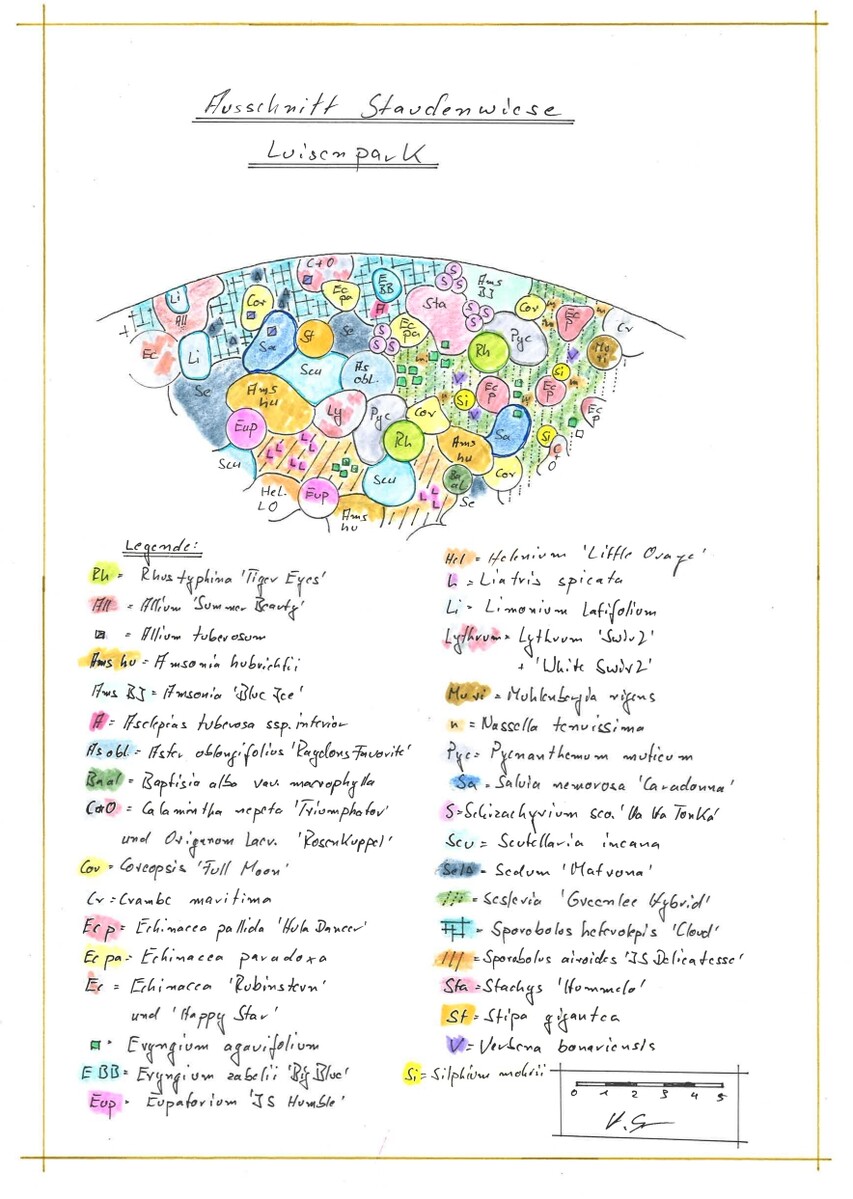 Ausschnitt Staudenwiese
Luisenpark
C+O
Li
All
Cor
Ec pa
E BB
S
S
S
Ams BJ
Sta
A
S
S
S
S
Cor
Ec P
Cr
Ec
Li
Sa
St
Se
S
S
S
Ec pa
Rh
Pyc
Mu vi
Se
Scu
As obl.
V
Si
Ec P
Si
V
Ec P
Ams hu
Ly
Pyc
Cor
V
Ec P
Eup
L
L
L
L
L
L
L
Rh
Ams hu
Sa
Si
C + O
Scu
Scu
Ba al
Cor
Hel. LO
Eup
Ams hu
L
L
L
Se
Legende:
Rh = Rhus typhina 'Tiger Eyes'
All = Allium 'Summer Beauty'
= Allium tuberosum
Ams hu = Amsonia hubrichtii
Ams BJ = Amsonia 'Blue Ice'
A = Asclepias tuberosa ssp. interior
As obl. = Aster oblongifolius 'Raydons Favorite'
Baal = Baptisia alba var. macrophylla
C+O = Calamintha nepeta 'Triumphator'
und Origanum laev. 'Rosenkuppel'
Cor = Coreopsis 'Full Moon'
Cr = Crambe maritima
Ec p = Echinacea pallida 'Hula Dancer'
Ec pa = Echinacea paradoxa
Ec = Echinacea 'Rubinstern'
und 'Happy Star'
= Eryngium agavifolium
E BB = Eryngium zabelii 'Big Blue'
Eup = Eupatorium 'JS Humble'
Hel = Helenium 'Little Orage'
L = Liatris spicata
Li = Limonium latifolium
Lythrum = Lythrum 'Swirl'
+ 'White Swirl'
Mu vi = Muhlenbergia rigens
n = Nassella tenuissima
Pyc = Pycnanthemum muticum
Sa = Salvia nemorosa 'Caradonna'
S = Schizachyrium sco. 'Ha Ha Tonka'
Scu = Scutellaria incana
Se = Sedum 'Matrona'
= Sesleria 'Greenlee Hybrid'
= Sporobolus heterolepis 'Cloud'
= Sporobolus airoides 'JS Delicatesse'
Sta = Stachys 'Hummelo'
St = Stipa gigantea
V = Verbena bonariensis
Si = Silphium mohrii
0 1 2 3 4 5